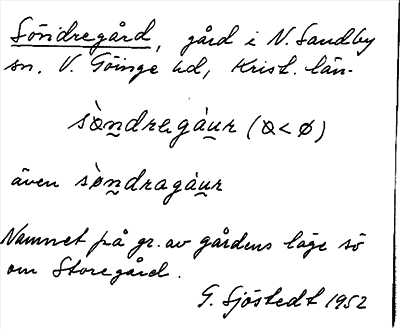 Söndregård, gård i N. Sandby
sn. V. Göinge hd, Krist. län.
sò̤ndregàu̠r (ꝋ<ø)
även sò̤ndragàu̠r
Namnet på gr. av gårdens läge sö
om Storegård.
G. Sjöstedt 1952